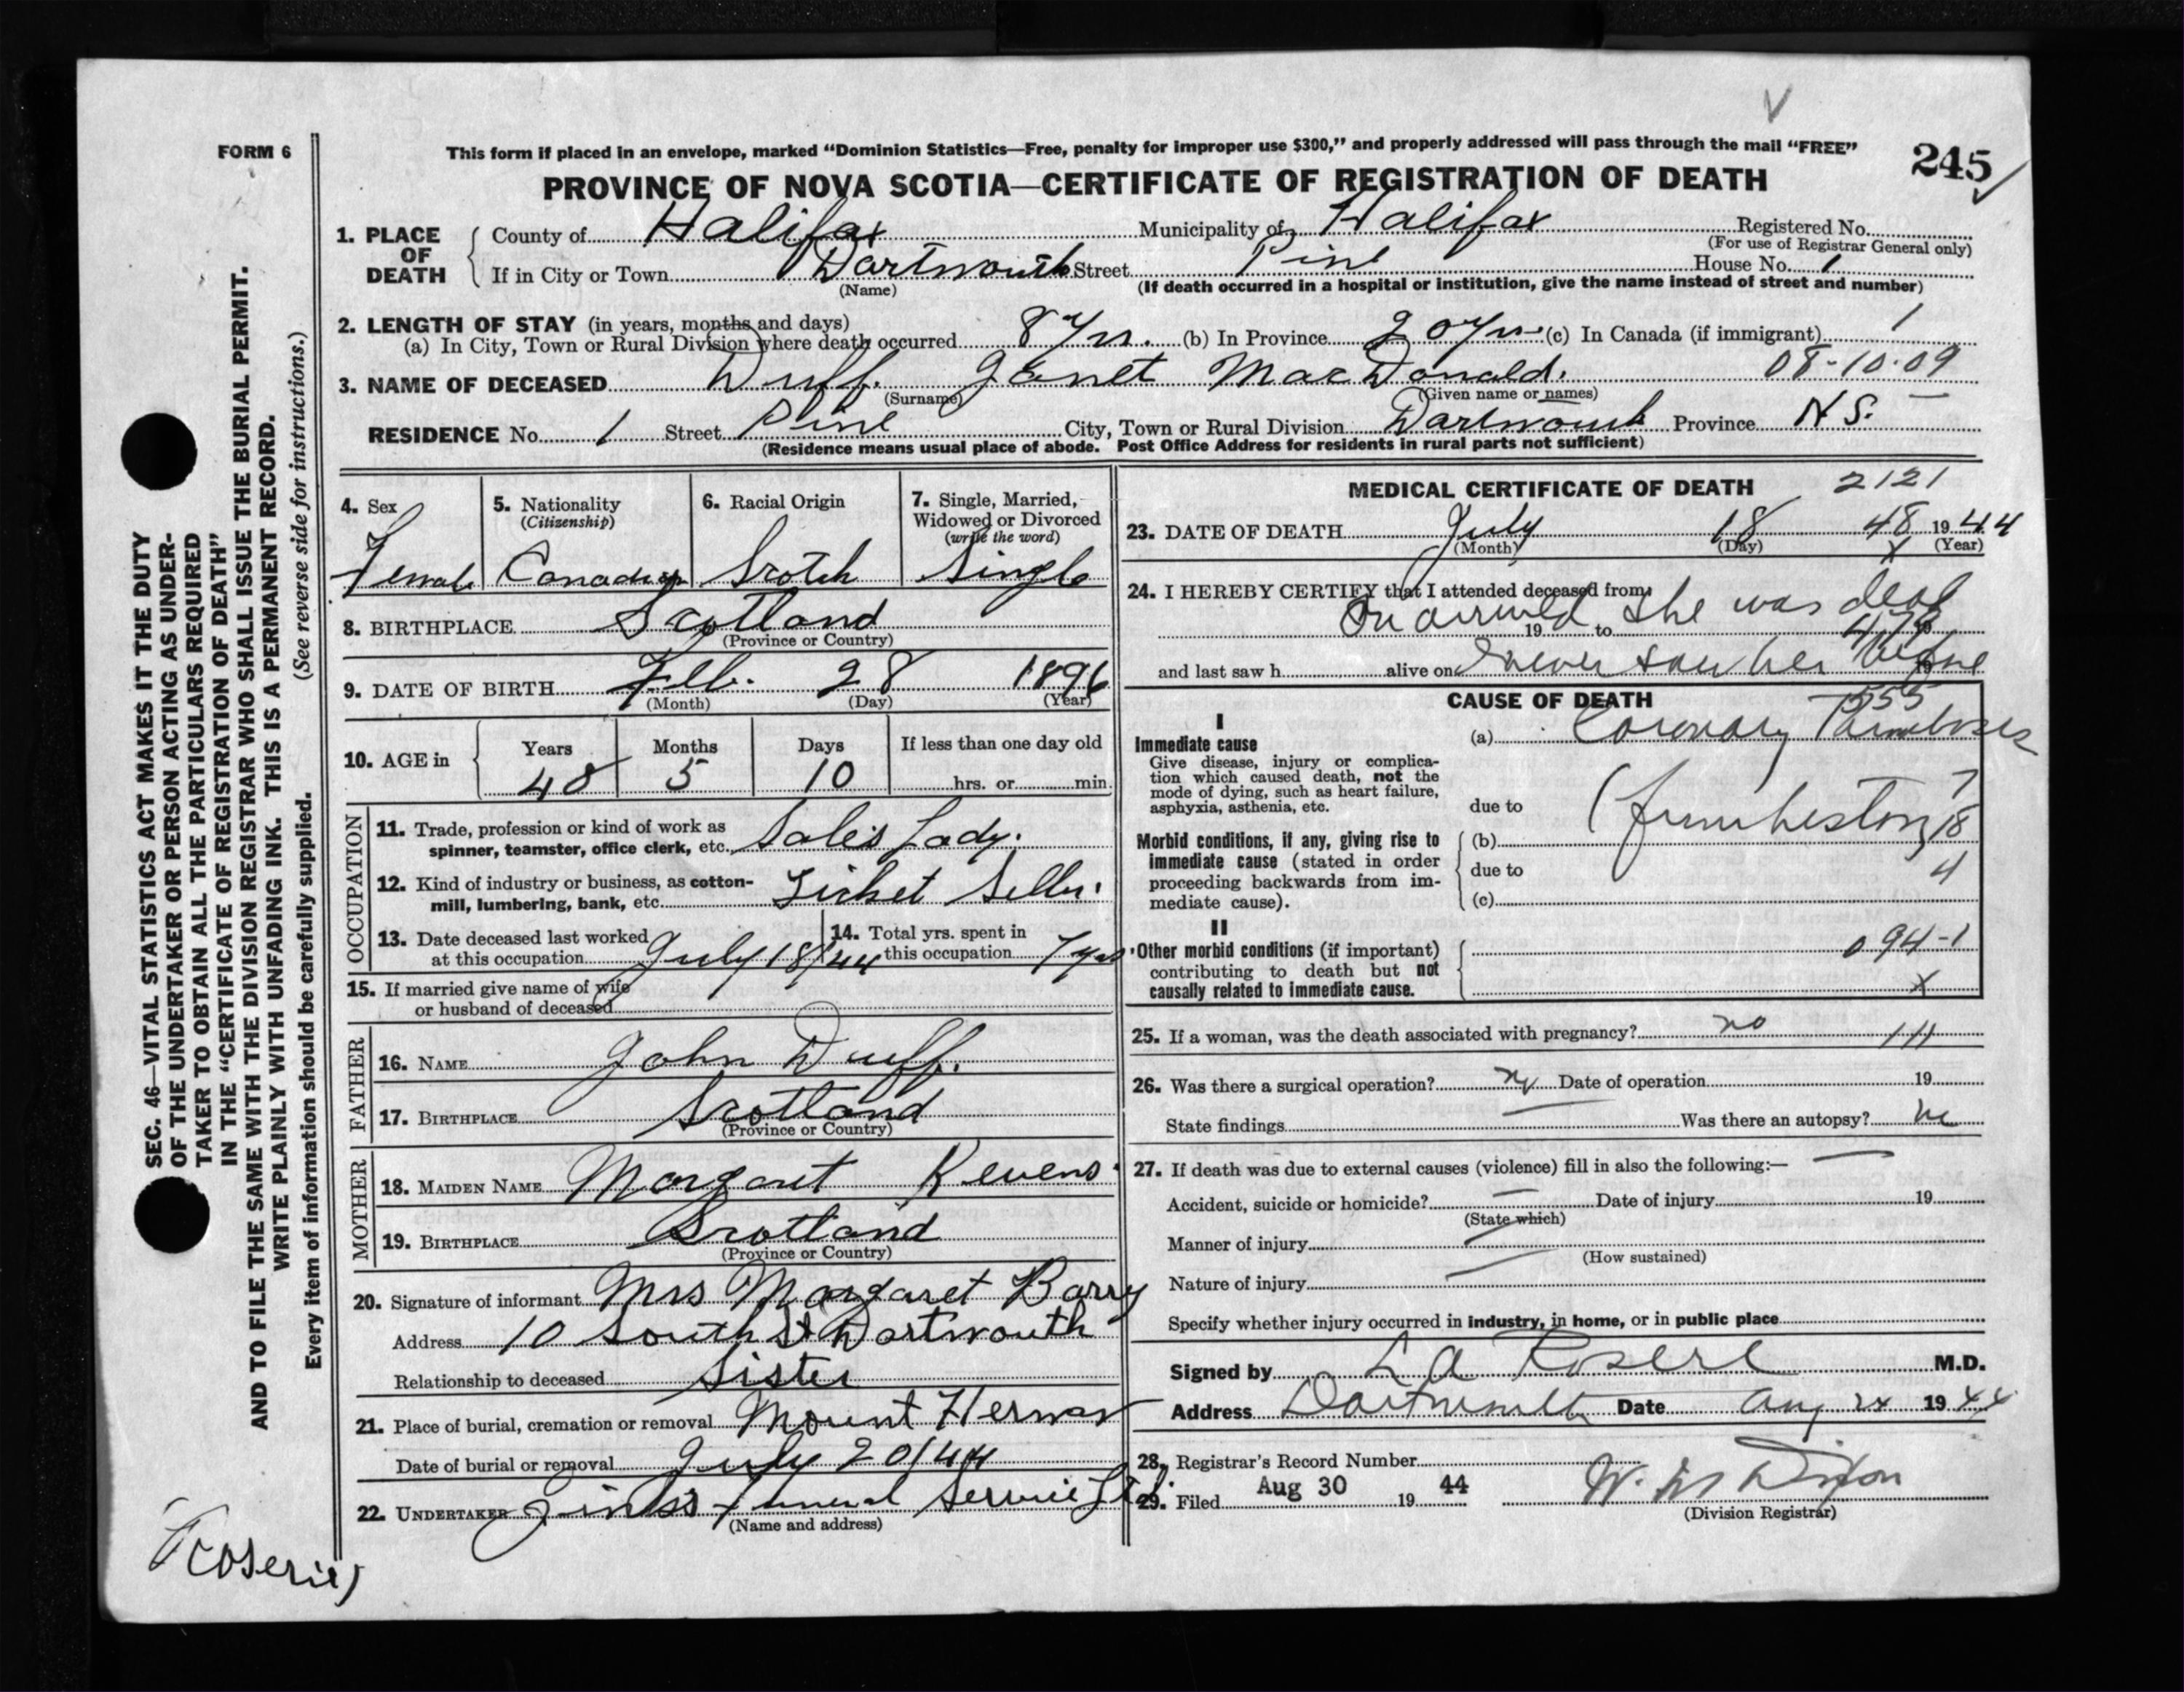 FORM 6
This form if placed in an envelope, marked “Dominion Statistics—Free, penalty for improper use $300,” and properly addressed will pass through the mail “FREE”
245
PROVINCE OF NOVA SCOTIA—CERTIFICATE OF REGISTRATION OF DEATH
1. PLACE OF DEATH
County of Halifax Municipality of Halifax Registered No.
(For use of Registrar General only)
If in City or Town Dartmouth Street Pine House No. 1
(Name) (If death occurred in a hospital or institution, give the name instead of street and number)
2. LENGTH OF STAY (in years, months and days)
(a) In City, Town or Rural Division where death occurred 8 yrs. (b) In Province 20 yrs (c) In Canada (if immigrant) 1
3. NAME OF DECEASED Duff. Janet MacDonald. 08-10-09
(Surname) (Given name or names)
RESIDENCE No. 1 Street Pine City, Town or Rural Division Dartmouth Province N.S.
(Residence means usual place of abode. Post Office Address for residents in rural parts not sufficient)
4. Sex Female
5. Nationality (Citizenship) Canadian
6. Racial Origin Scotch
7. Single, Married, Widowed or Divorced (write the word) Single
8. BIRTHPLACE Scotland
(Province or Country)
9. DATE OF BIRTH Feb. 28 1896
(Month) (Day) (Year)
10. AGE in Years Months Days If less than one day old
48 5 10 hrs. or min.
OCCUPATION
11. Trade, profession or kind of work as
spinner, teamster, office clerk, etc. Sales Lady.
12. Kind of industry or business, as cotton-
mill, lumbering, bank, etc. Ticket Seller.
13. Date deceased last worked
at this occupation July 18/44
14. Total yrs. spent in
this occupation 7 yrs
15. If married give name of wife
or husband of deceased
FATHER
16. NAME John Duff.
17. BIRTHPLACE Scotland
(Province or Country)
MOTHER
18. MAIDEN NAME Margaret Kevens
19. BIRTHPLACE Scotland
(Province or Country)
20. Signature of informant Mrs Margaret Barry
Address 10 South St Dartmouth
Relationship to deceased Sister
21. Place of burial, cremation or removal Mount Herman
Date of burial or removal July 20/44
22. UNDERTAKER Zink's Funeral Service Ltd.
(Name and address)
MEDICAL CERTIFICATE OF DEATH 2121
23. DATE OF DEATH July 18 48 1944
(Month) (Day) (Year)
24. I HEREBY CERTIFY that I attended deceased from:
19 to she was dead
and last saw h alive on never saw her before
CAUSE OF DEATH
555
I
Immediate cause
Give disease, injury or complica-
tion which caused death, not the
mode of dying, such as heart failure,
asphyxia, asthenia, etc.
(a) Coronary Thrombosis
7
due to (from history 18
Morbid conditions, if any, giving rise to
immediate cause (stated in order
proceeding backwards from im-
mediate cause).
(b)
due to 4
(c)
II
Other morbid conditions (if important)
contributing to death but not
causally related to immediate cause.
094-1
x
25. If a woman, was the death associated with pregnancy? no
26. Was there a surgical operation? no Date of operation 19
State findings Was there an autopsy? no
27. If death was due to external causes (violence) fill in also the following:—
Accident, suicide or homicide? Date of injury 19
(State which)
Manner of injury
(How sustained)
Nature of injury
Specify whether injury occurred in industry, in home, or in public place
Signed by M.D.
Address Dartmouth Date Aug 24 1944
28. Registrar's Record Number
29. Filed Aug 30 19 44 Dixon
(Division Registrar)
SEC. 46—VITAL STATISTICS ACT MAKES IT THE DUTY
OF THE UNDERTAKER OR PERSON ACTING AS UNDER-
TAKER TO OBTAIN ALL THE PARTICULARS REQUIRED
IN THE “CERTIFICATE OF REGISTRATION OF DEATH”
AND TO FILE THE SAME WITH THE DIVISION REGISTRAR WHO SHALL ISSUE THE BURIAL PERMIT.
WRITE PLAINLY WITH UNFADING INK. THIS IS A PERMANENT RECORD.
Every item of information should be carefully supplied. (See reverse side for instructions.)